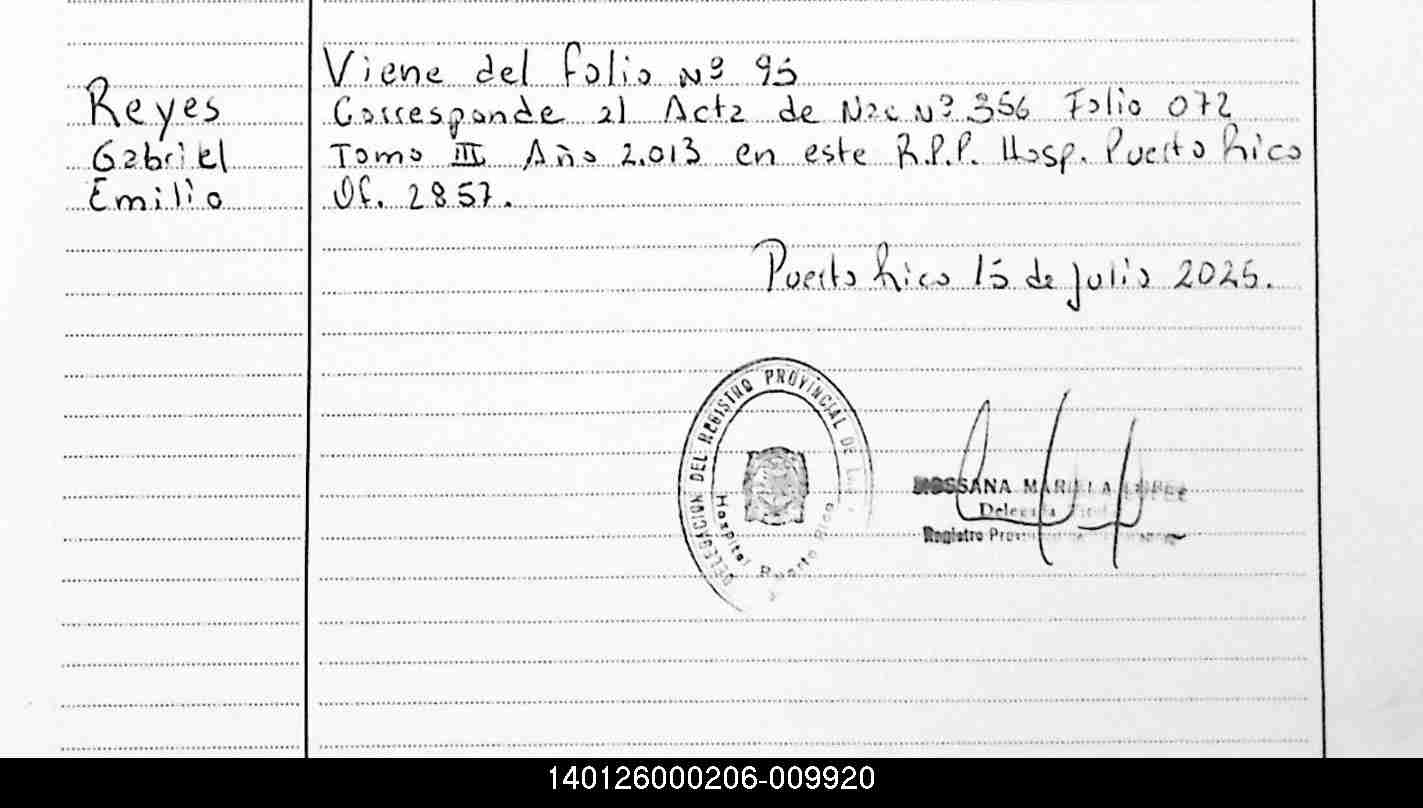 Reyes
Gabriel
Emilio
Viene del folio Nº 95
Corresponde al Acta de Nac Nº 356 Folio 072
Tomo III Año 2.013 en este R.P.P. Hosp. Puerto Rico
Of. 2857.
Puerto Rico 15 de julio 2025.
DELEGACION DEL REGISTRO PROVINCIAL DE
Hospital Puerto Rico
MARIELA LOPEZ
Delegada
Registro
140126000206-009920